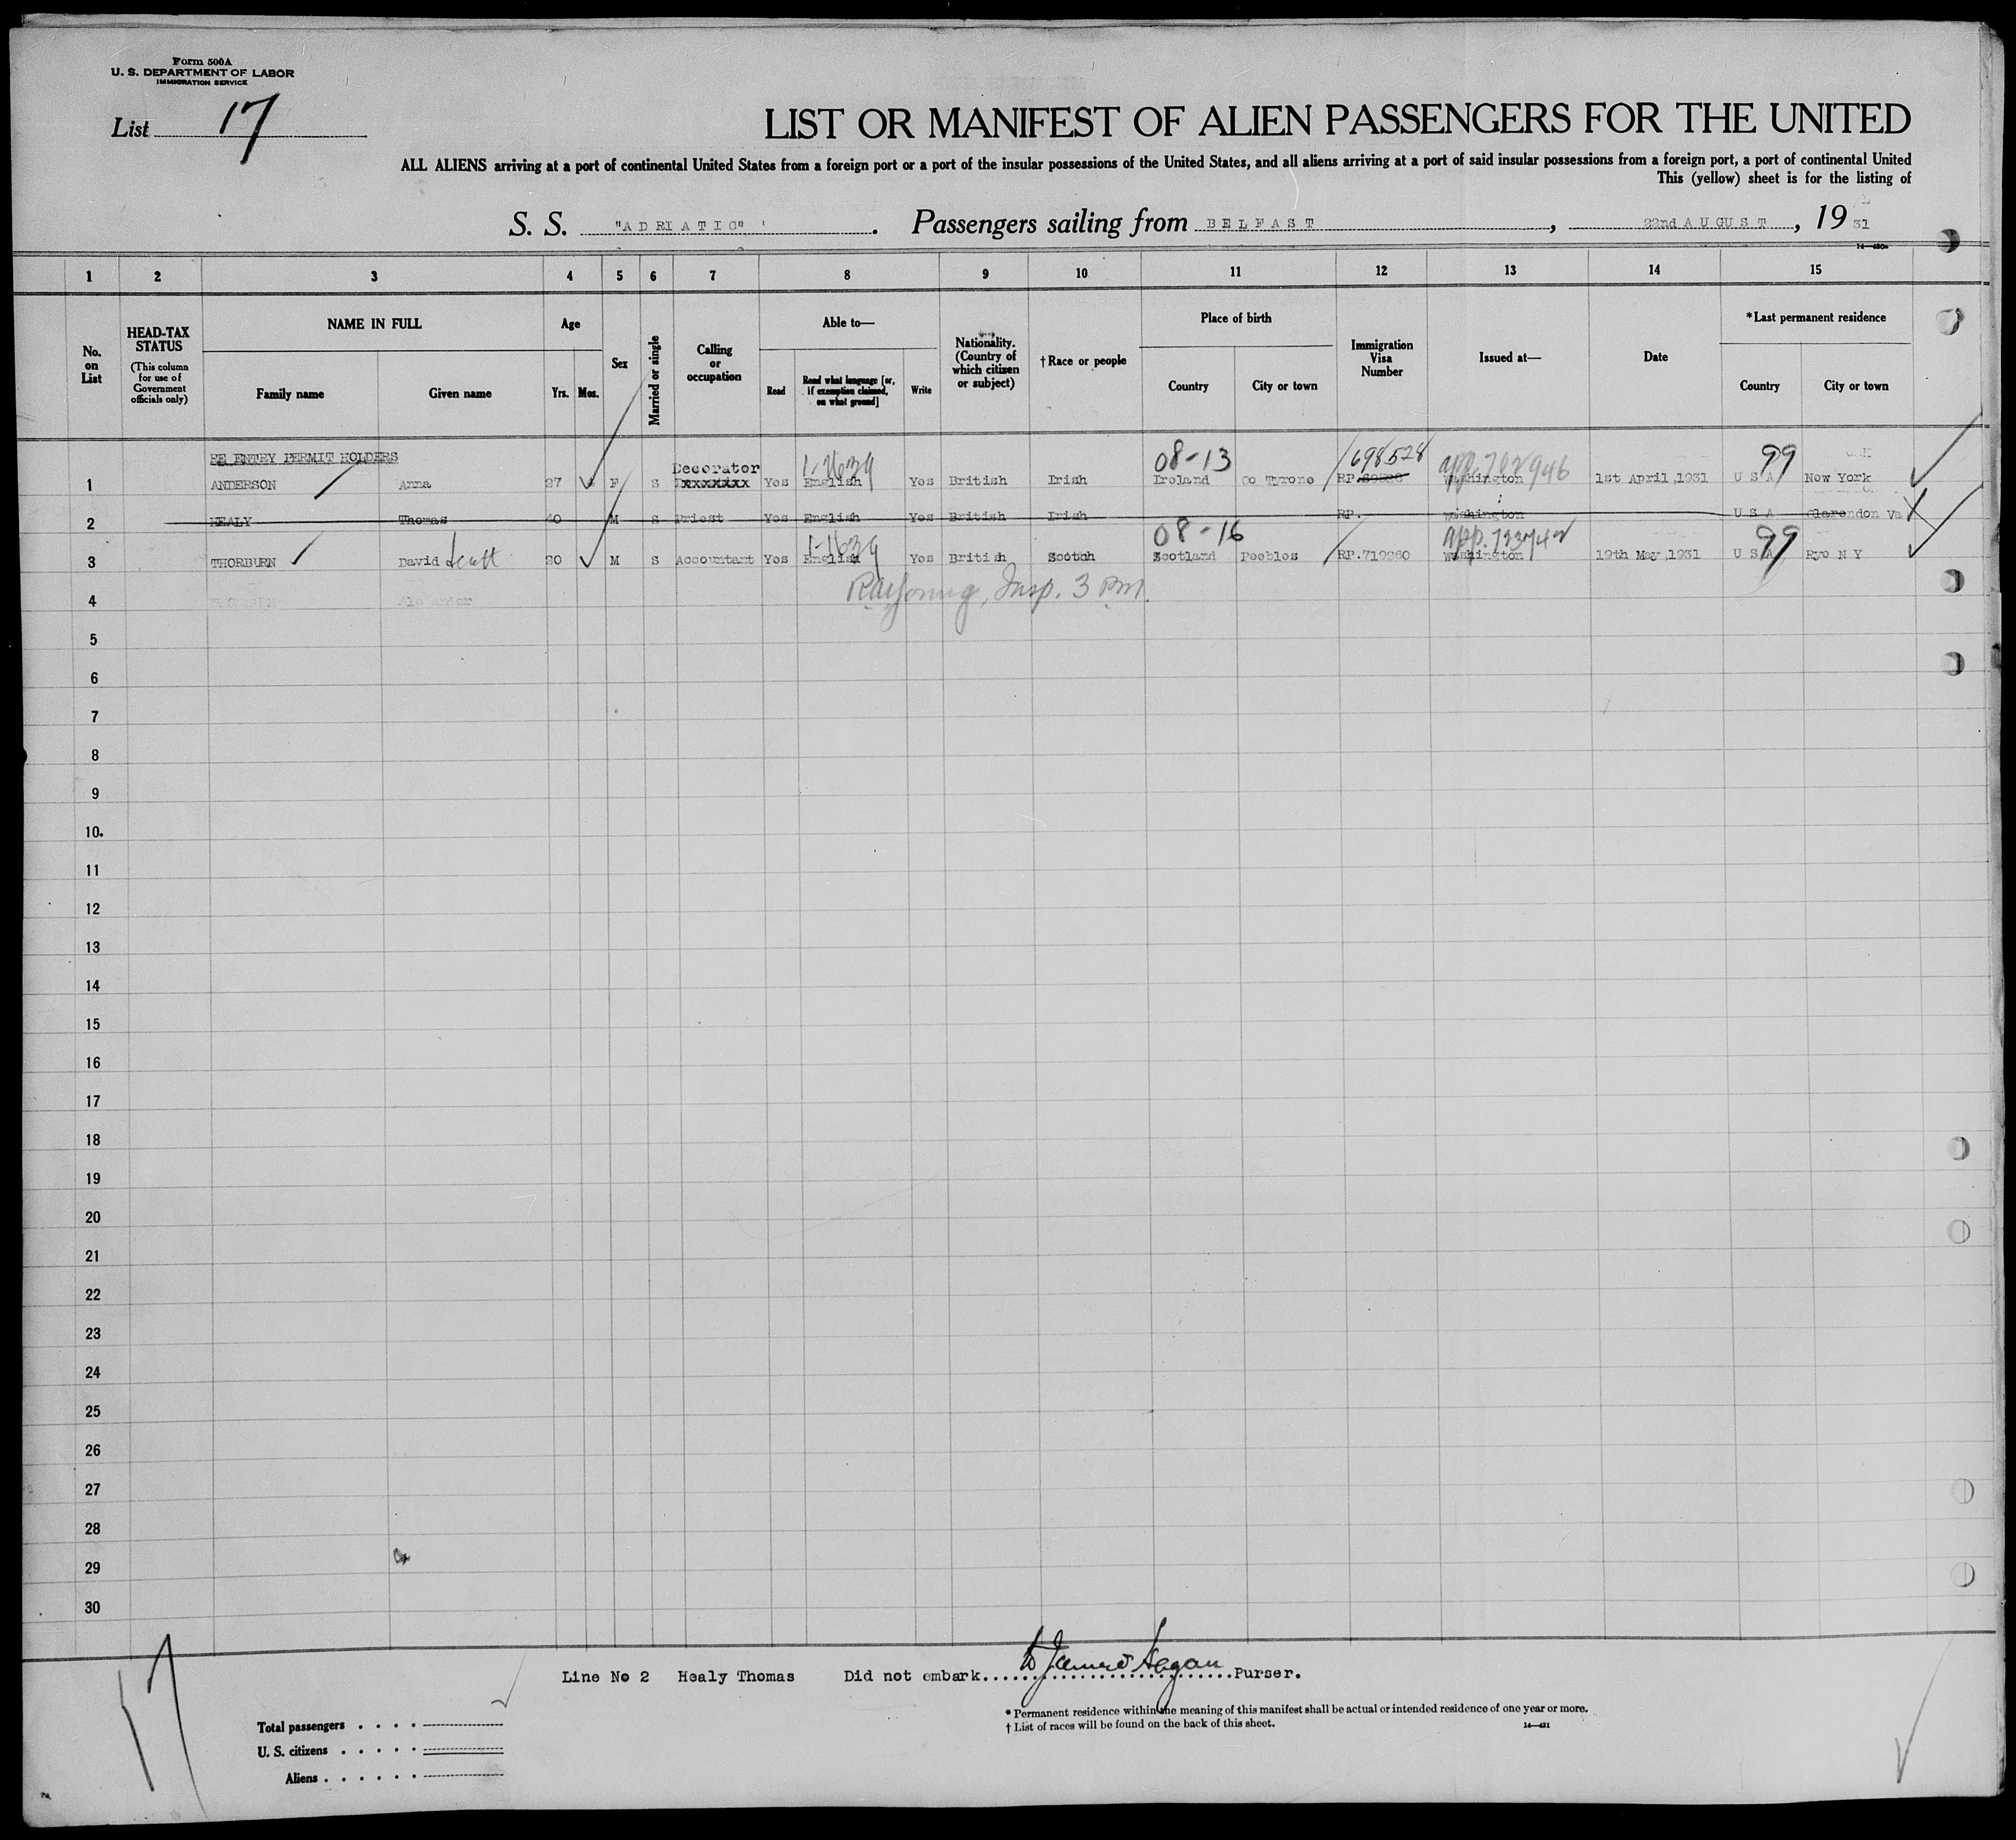 Form 500A
U. S. DEPARTMENT OF LABOR
IMMIGRATION SERVICE
List 17
LIST OR MANIFEST OF ALIEN PASSENGERS FOR THE UNITED
ALL ALIENS arriving at a port of continental United States from a foreign port or a port of the insular possessions of the United States, and all aliens arriving at a port of said insular possessions from a foreign port, a port of continental United
This (yellow) sheet is for the listing of
S. S. "ADRIATIC" . Passengers sailing from BELFAST , 22nd AUGUST , 19 31
1 2 3 4 5 6 7 8 9 10 11 12 13 14 15
No. on List
HEAD-TAX STATUS
(This column for use of Government officials only)
NAME IN FULL
Family name Given name
Age
Yrs. Mos.
Sex
Married or single
Calling or occupation
Able to—
Read Read what language [or, if exemption claimed, on what ground] Write
Nationality. (Country of which citizen or subject)
† Race or people
Place of birth
Country City or town
Immigration Visa Number
Issued at—
Date
* Last permanent residence
Country City or town
RE ENTRY PERMIT HOLDERS
Decorator 08-13 698528 app. 702946 99
1 ANDERSON Anna 27 F S xxxxxxxx Yes English Yes British Irish Ireland Co Tyrone RP. Washington 1st April,1931 U S A New York
2 HEALY Thomas 40 M S Priest Yes English Yes British Irish RP. Washington U S A Clarendon Va
08-16 99
3 THORBURN David Scott 30 M S Accountant Yes English Yes British Scotch Scotland Peebles RP.719260 Washington 19th May,1931 U S A Rye N Y
Insp. 3 PM
4
5
6
7
8
9
10.
11
12
13
14
15
16
17
18
19
20
21
22
23
24
25
26
27
28
29
30
17
Line No 2 Healy Thomas Did not embark Purser.
* Permanent residence within the meaning of this manifest shall be actual or intended residence of one year or more.
† List of races will be found on the back of this sheet.
14—431
Total passengers
U. S. citizens
Aliens